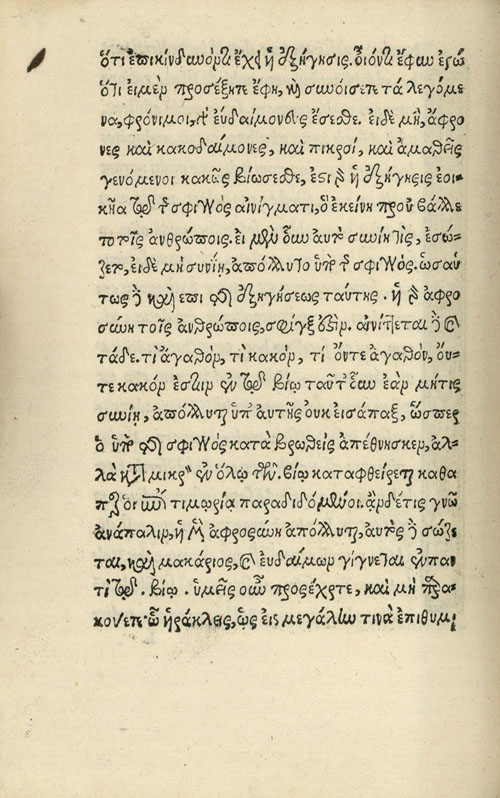 ὅτι ἐπικίνδυνόν τι ἔχει ἡ ἐξήγησις. οἷόν τι ἔφην ἐγώ
ὅτι εἰ μὲν προσέξετε ἔφη, καὶ συνήσετε τὰ λεγόμε
να, φρόνιμοι, καὶ εὐδαίμονες ἔσεσθε. εἰ δὲ μὴ, ἄφρο
νες καὶ κακοδαίμονες, καὶ πικροί, καὶ ἀμαθεῖς
γενόμενοι κακῶς βιώσεσθε, ἔστι γὰρ ἡ ἐξήγησις ἐοι-
κῆα τῷ τῆς σφιγγὸς αἰνίγματι, ὃ ἐκείνη προὐβάλλε
το τοῖς ἀνθρώποις. εἰ μὲν οὖν αὐτὸ συνίη τὶς, ἐσώ-
ζετο, εἰ δὲ μὴ συνίη, ἀπόλλυτο ὑπὸ τῆς σφιγγός. ὡσαύ
τως δὲ καὶ ἐπὶ τῆς ἐξηγήσεως ταύτης. ἡ γὰρ ἀφρο
σύνη τοῖς ἀνθρώποις, σφίγξ ἐστίν. αἰνίττεται δὲ καὶ
τάδε. τί ἀγαθόν, τί κακόν, τί οὔτε ἀγαθόν, οὔ-
τε κακόν ἐστιν ἐν τῷ βίῳ ταῦτ' οὖν ἐὰν μήτις
συνίῃ, ἀπόλλυται ὑπ' αὐτῆς οὐκ εἰσάπαξ, ὥσπερ
ὁ ὑπὸ τῆς σφιγγὸς καταβρωθεὶς ἀπέθνησκεν, ἀλ-
λὰ κατὰ μικρὸν ἐν ὅλῳ τῷ βίῳ καταφθείρεται καθά
περ οἱ ἐπὶ τιμωρίᾳ παραδιδόμενοι. ἂν δέ τις γνῷ
ἀνάπαλιν, ἡ μὲν ἀφροσύνη ἀπόλλυται, αὐτὸς δὲ σώζε
ται, καὶ μακάριος, καὶ εὐδαίμων γίγνεται ἐν παν
τὶ τῷ. βίῳ. ὑμεῖς οὖν προσέχετε, καὶ μὴ παρα-
κούετε. ὦ ἡράκλεις, ὡς εἰς μεγάλην τινὰ ἐπιθυμί